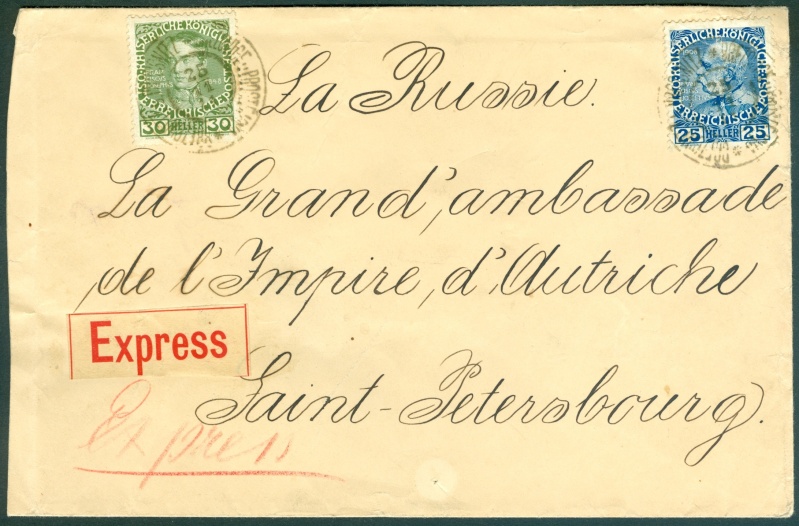 KAISERLICHE KÖNIGLICHE
ÖSTERREICHISCHE POST
30 HELLER 30
KAISERLICHE KÖNIGLICHE
ÖSTERREICHISCHE POST
25 HELLER 25
La Russie.
La Grand'ambassade
de l'Impire d'Autriche
Express
Saint-Petersbourg.
Express